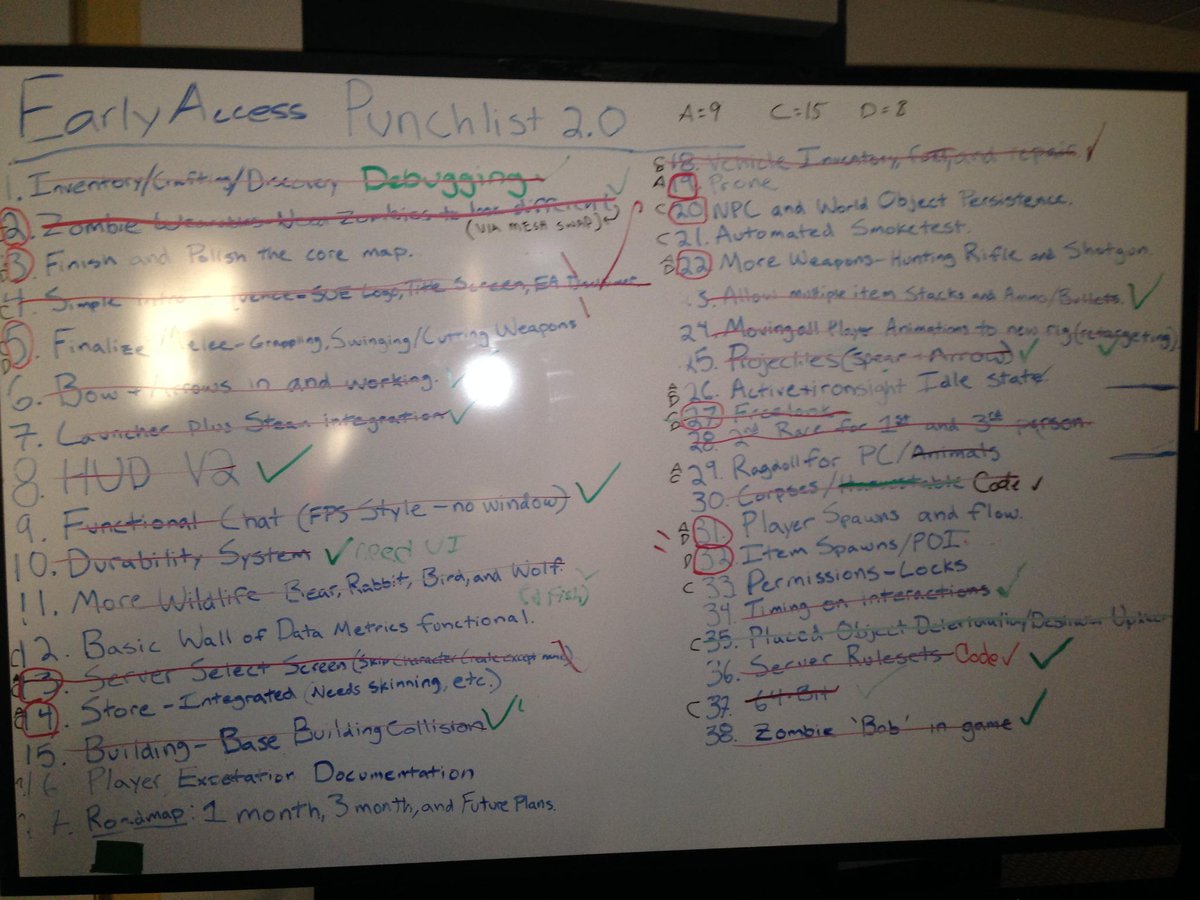 Early Access Punchlist 2.0
A=9 C=15 D=8
1. Inventory/Crafting/Discovery Debugging
2. Zombie New Zombies to look different
(VIA MESH SWAP)
3. Finish and Polish the core map.
4. Simple Intro - SOE Logo, Title Screen, EA
5. Finalize Melee - Grappling, Swinging/Cutting Weapons
6. Bow + Arrows in and working.
7. Launcher plus Steam integration
8. HUD V2
9. Functional Chat (FPS Style - no window)
10. Durability System need UI
11. More Wildlife - Bear, Rabbit, Bird, and Wolf.
(& fish)
C 12. Basic Wall of Data Metrics functional.
13. Server Select Screen (Skip Character Create except name)
14. Store - Integrated (Needs skinning, etc.)
15. Building - Base Building Collision
16. Player Excetation Documentation
17. Roadmap: 1 month, 3 month, and Future Plans.
18. Vehicle Inventory, fuel, and repair
A 19. Prone
C 20. NPC and World Object Persistence.
C 21. Automated Smoketest.
A D 22. More Weapons - Hunting Rifle and Shotgun
3. Allow multiple item Stacks and Ammo/Bullets.
24. Moving all Player Animations to new rig (retargeting)
25. Projectiles (Spear + Arrow)
A D 26. Active + ironsight Idle state
C D 27. Freelook
28. 2nd Race for 1st and 3rd person
A C 29. Ragdoll for PC/Animals
30. Corpses/Harvestable Code
A D 31. Player Spawns and flow.
D 32. Item Spawns/POI.
C 33. Permissions - Locks
34. Timing on interactions
C 35. Placed Object Deterioration/
36. Server Rulesets Code
C 37. 64-Bit
38. Zombie 'Bob' in game